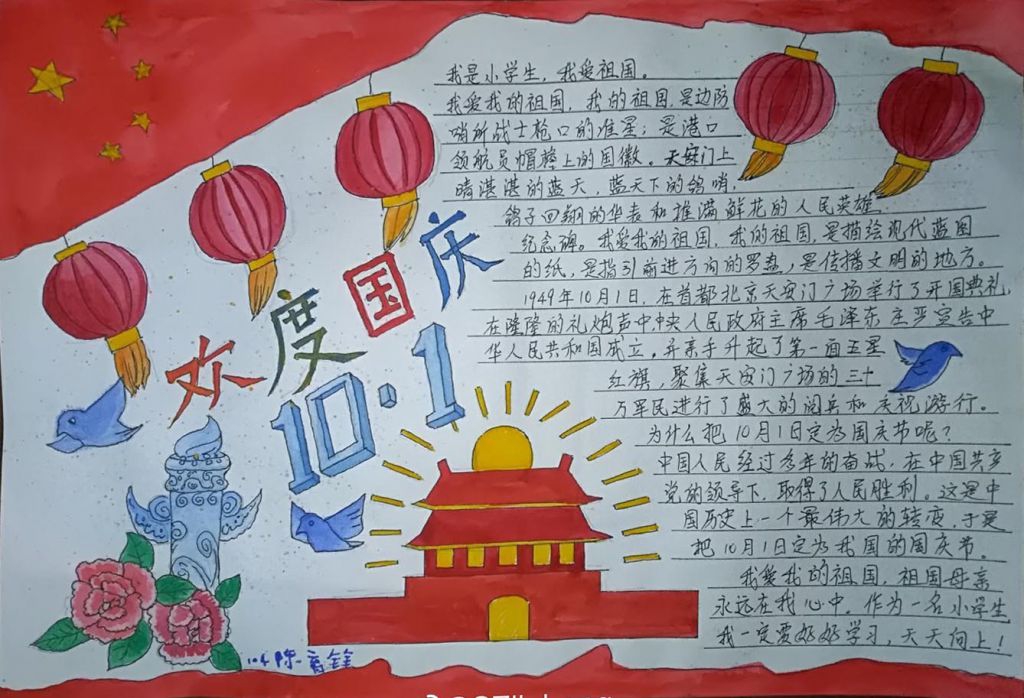 欢度国庆
10·1
我是小学生，我爱祖国。
我爱我的祖国，我的祖国是边防
哨所战士枪口的准星；是港口
领航员帽檐上的国徽。天安门上
晴湛湛的蓝天，蓝天下的鸽哨，
鸽子回翔的华表和推满鲜花的人民英雄
纪念碑。我爱我的祖国，我的祖国，是描绘现代蓝图
的纸，是指引前进方向的罗盘，是传播文明的地方。
1949年10月1日，在首都北京天安门广场举行了开国典礼，
在隆隆的礼炮声中，中央人民政府主席毛泽东庄严宣告中
华人民共和国成立，并亲手升起了第一面五星
红旗，聚集天安门广场的三十
万军民进行了盛大的阅兵和庆祝游行。
为什么把10月1日定为国庆节呢？
中国人民经过多年的奋战，在中国共产
党的领导下，取得了人民胜利。这是中
国历史上一个最伟大的转变，于是
把10月1日定为我国的国庆节。
我爱我的祖国，祖国母亲
永远在我心中，作为一名小学生
我一定要好好学习，天天向上！